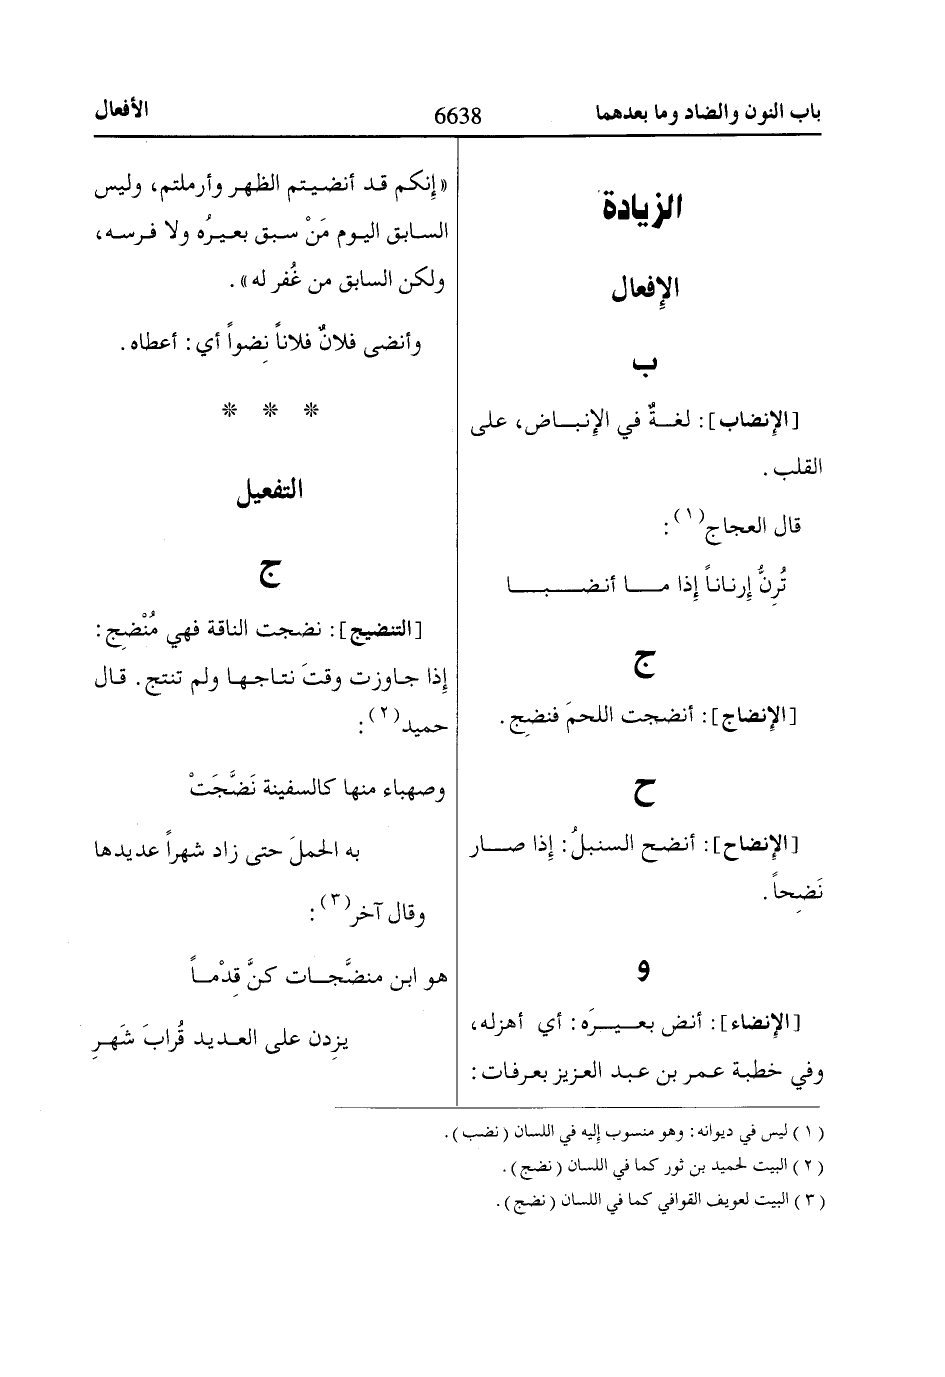 باب النون والضاد وما بعدهما
6638
الأفعال
الزيادة
الإفعال
ب
[الإنضاب]: لغـةٌ في الإنبـاض، على
القلب.
قال العجاج(١):
تُرِنُّ إرناناً إذا مـا أنضبـا
ج
[الإنضاج]: أنضجت اللحمَ فنضِج.
ح
[الإنضاح]: أنضح السنبلُ: إذا صـار
نَضِحاً.
و
[الإنضاء]: أنض بعـيـرَه: أي أهزله،
وفي خطبة عمر بن عبد العزيز بعرفات:
«إنكم قد أنضيتم الظهر وأرملتم، وليس
السابق اليوم مَنْ سبق بعيرُه ولا فرسه،
ولكن السابق من غُفر له».
وأنضى فلانٌ فلاناً نِضواً أي: أعطاه.
* * *
التفعيل
ج
[التنضيج]: نضجت الناقة فهي مُنْضِج:
إذا جاوزت وقتَ نتاجها ولم تنتج. قال
حميد(٢):
وصهباء منها كالسفينة نَضَّجَتْ
به الحملَ حتى زاد شهراً عديدها
وقال آخر(٣):
هو ابن منضَّجات كنَّ قِدْماً
يزِدن على العديد قُرابَ شَهرِ
(١) ليس في ديوانه: وهو منسوب إليه في اللسان (نضب).
(٢) البيت لحميد بن ثور كما في اللسان (نضج).
(٣) البيت لعويف القوافي كما في اللسان (نضج).